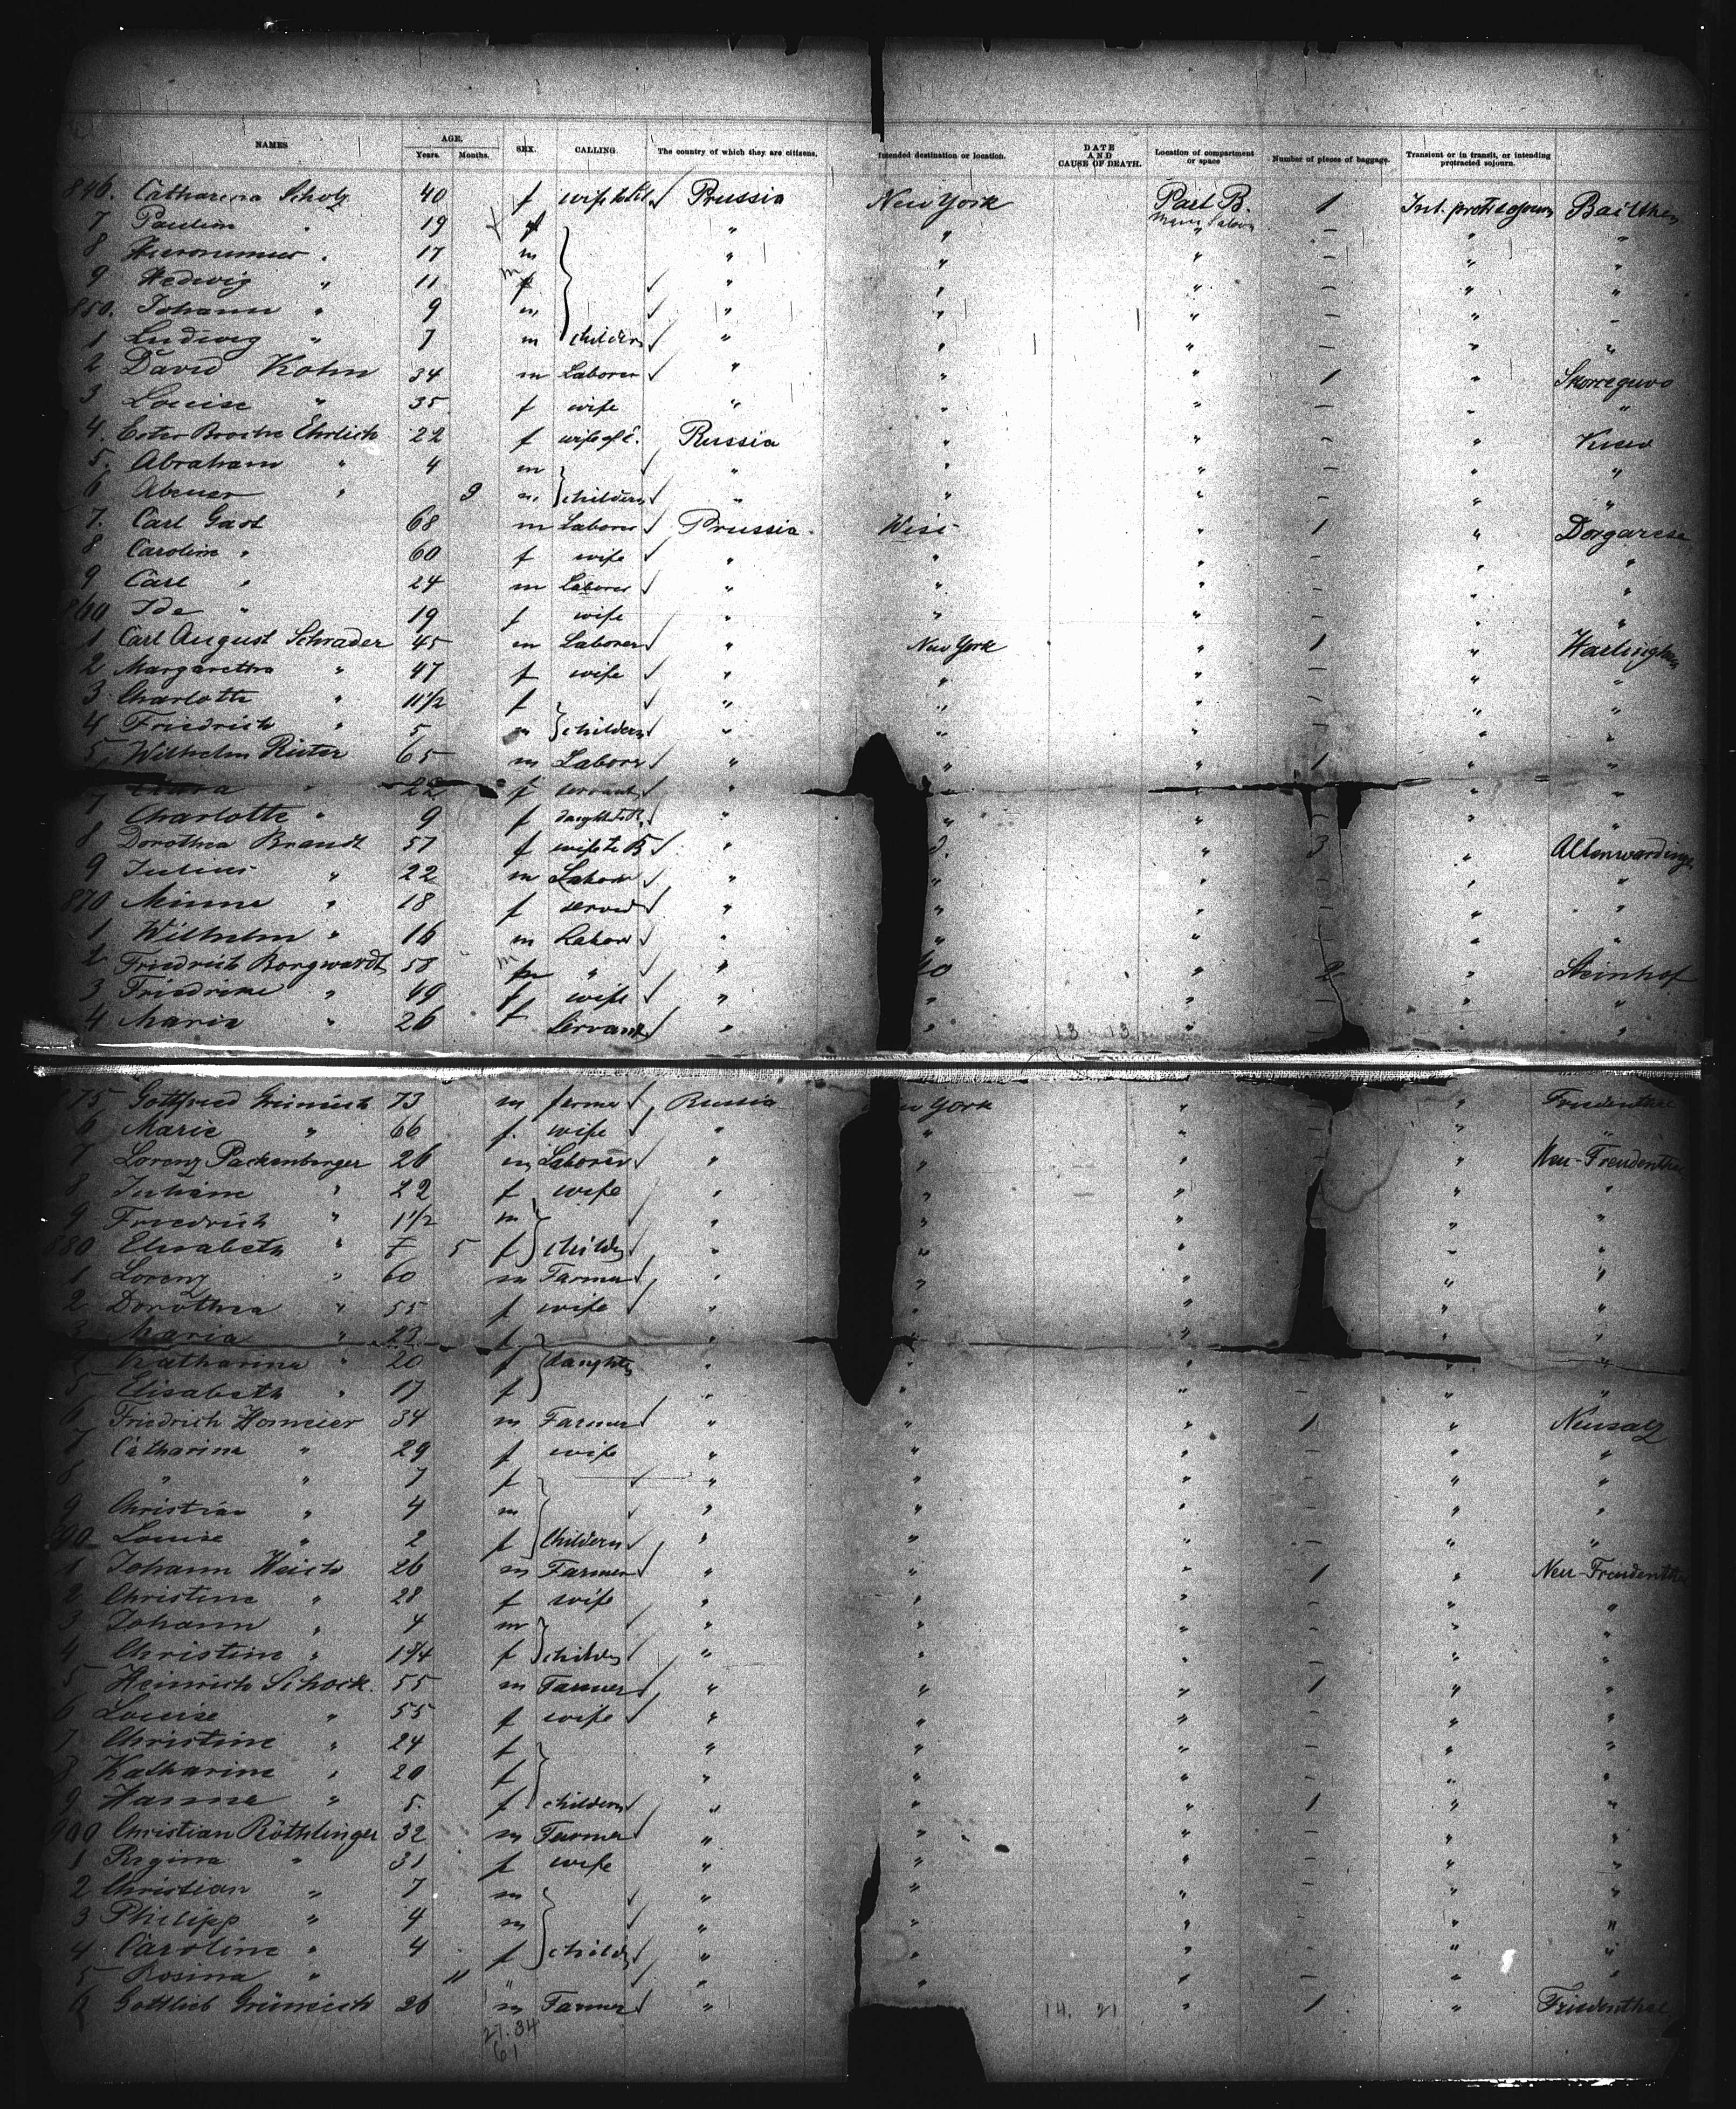 NAMES AGE. Years. Months. SEX. CALLING. The country of which they are citizens. Intended destination or location. DATE AND CAUSE OF DEATH. Location of compartment or space Number of pieces of baggage. Transient or in transit, or intending protracted sojourn.
846. Catharina Scholz 40 f wife to Sch. Prussia New York Part B. 1 Int. prot. sojourn
7 Paulin " 19 f " " Main Saloon - " "
8 Hieronimus " 17 m " " " - " "
9 Hedwig " 11 m f " " " - " "
850. Johann " 9 m " " " - " "
1 Ludwig " 7 m childern " " " - " "
2 David Kohn 34 m Laborer " " " 1 "
3 Louise " 35 f wife " " " - " "
4. Ester Broche Ehrlich 22 f wife of E. Russia " " - "
5. Abraham " 4 m " " " - " "
6 Abener " 9 m childern " " " - " "
7. Carl Gast 68 m Laborer Prussia. West " 1 "
8 Carolin " 60 f wife " " " - " "
9 Carl " 24 m Laborer " " " - " "
860 Ide " 19 f wife " " " - " "
1 Carl August Schrader 45 m Laborer " New York " 1 "
2 Margaretha " 47 f wife " " " - " "
3 Charlotte " 11 1/2 f " " " - " "
4 Friedrich " 5 m childern " " " - " "
5 Wilhelm Rieter 65 m Labore " " " 1 " "
Clara " 22 f servant " " " "
7 Charlotte " 9 f daught. to R. " " " - " "
8 Dorothea Brandt 57 f wife to B " " 3 "
9 Julius " 22 m Labor " " " - " "
870 Minne " 18 f servd " " " - " "
1 Wilhelm " 16 m Labor " " " - " "
2 Friedrich Borgwardt 58 m " " " 2 " Steinhof
3 Friedrike " 49 f wife " " " - " "
4 Marie " 26 f Servant " " 13 13 " - " "
75 Gottfried 73 m farmer Russia New York " " Friedenthal
6 Marie " 66 f. wife " " " - " "
7 Lorenz Packenberger 26 m Laborer " " " " Neu-Freudenthal
8 Juliane " 22 f wife " " " " "
9 Friedrich " 1 1/2 m " " " " "
880 Elisabeth " 5 f childern " " " " "
1 Lorenz " 60 m Farmer " " " " "
2 Dorothea " 55 f wife " " " " "
3 Maria " 23 f " " " " "
4 Katharina " 20 f daughters " " " " "
5 Elisabeth " 17 f " " " - " "
6 Friedrich Homeier 34 m Farmer " " " 1 " Neusatz
7 Catharina " 29 f wife " " " - " "
8 " " 7 f " " " - " "
9 Christian " 4 m " " " - " "
890 Louise " 2 f Childern " " " - " "
1 Johann Weich 26 m Farmer " " " 1 " Neu-Freudenthal
2 Christine " 28 f wife " " " - " "
3 Johann " 4 m " " " - " "
4 Christine " 1 3/4 f childern " " " - " "
5 Heinrich Schock 55 m Farmer " " " 1 " "
6 Louise " 55 f wife " " " - " "
7 Christine " 24 f " " " - " "
8 Katharine " 20 f " " " - " "
9 Hanne " 5. f childern " " " 1 " "
900 Christian Röthlinger 32 m Farmer " " " - " "
1 Regina " 31 f wife " " " - " "
2 Christian " 7 m " " " - " "
3 Philipp " 4 m " " " - " "
4 Caroline " 4 f childn " " " - " "
5 Rosina " 11 " " " " - " "
6 Gottlieb 26 m Farmer " 14. 21 " 1 " Friedenthal
27. 34
61